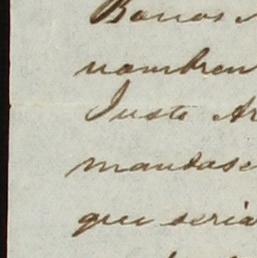 Barros
nombren
Justo Ar
mandase
que seria